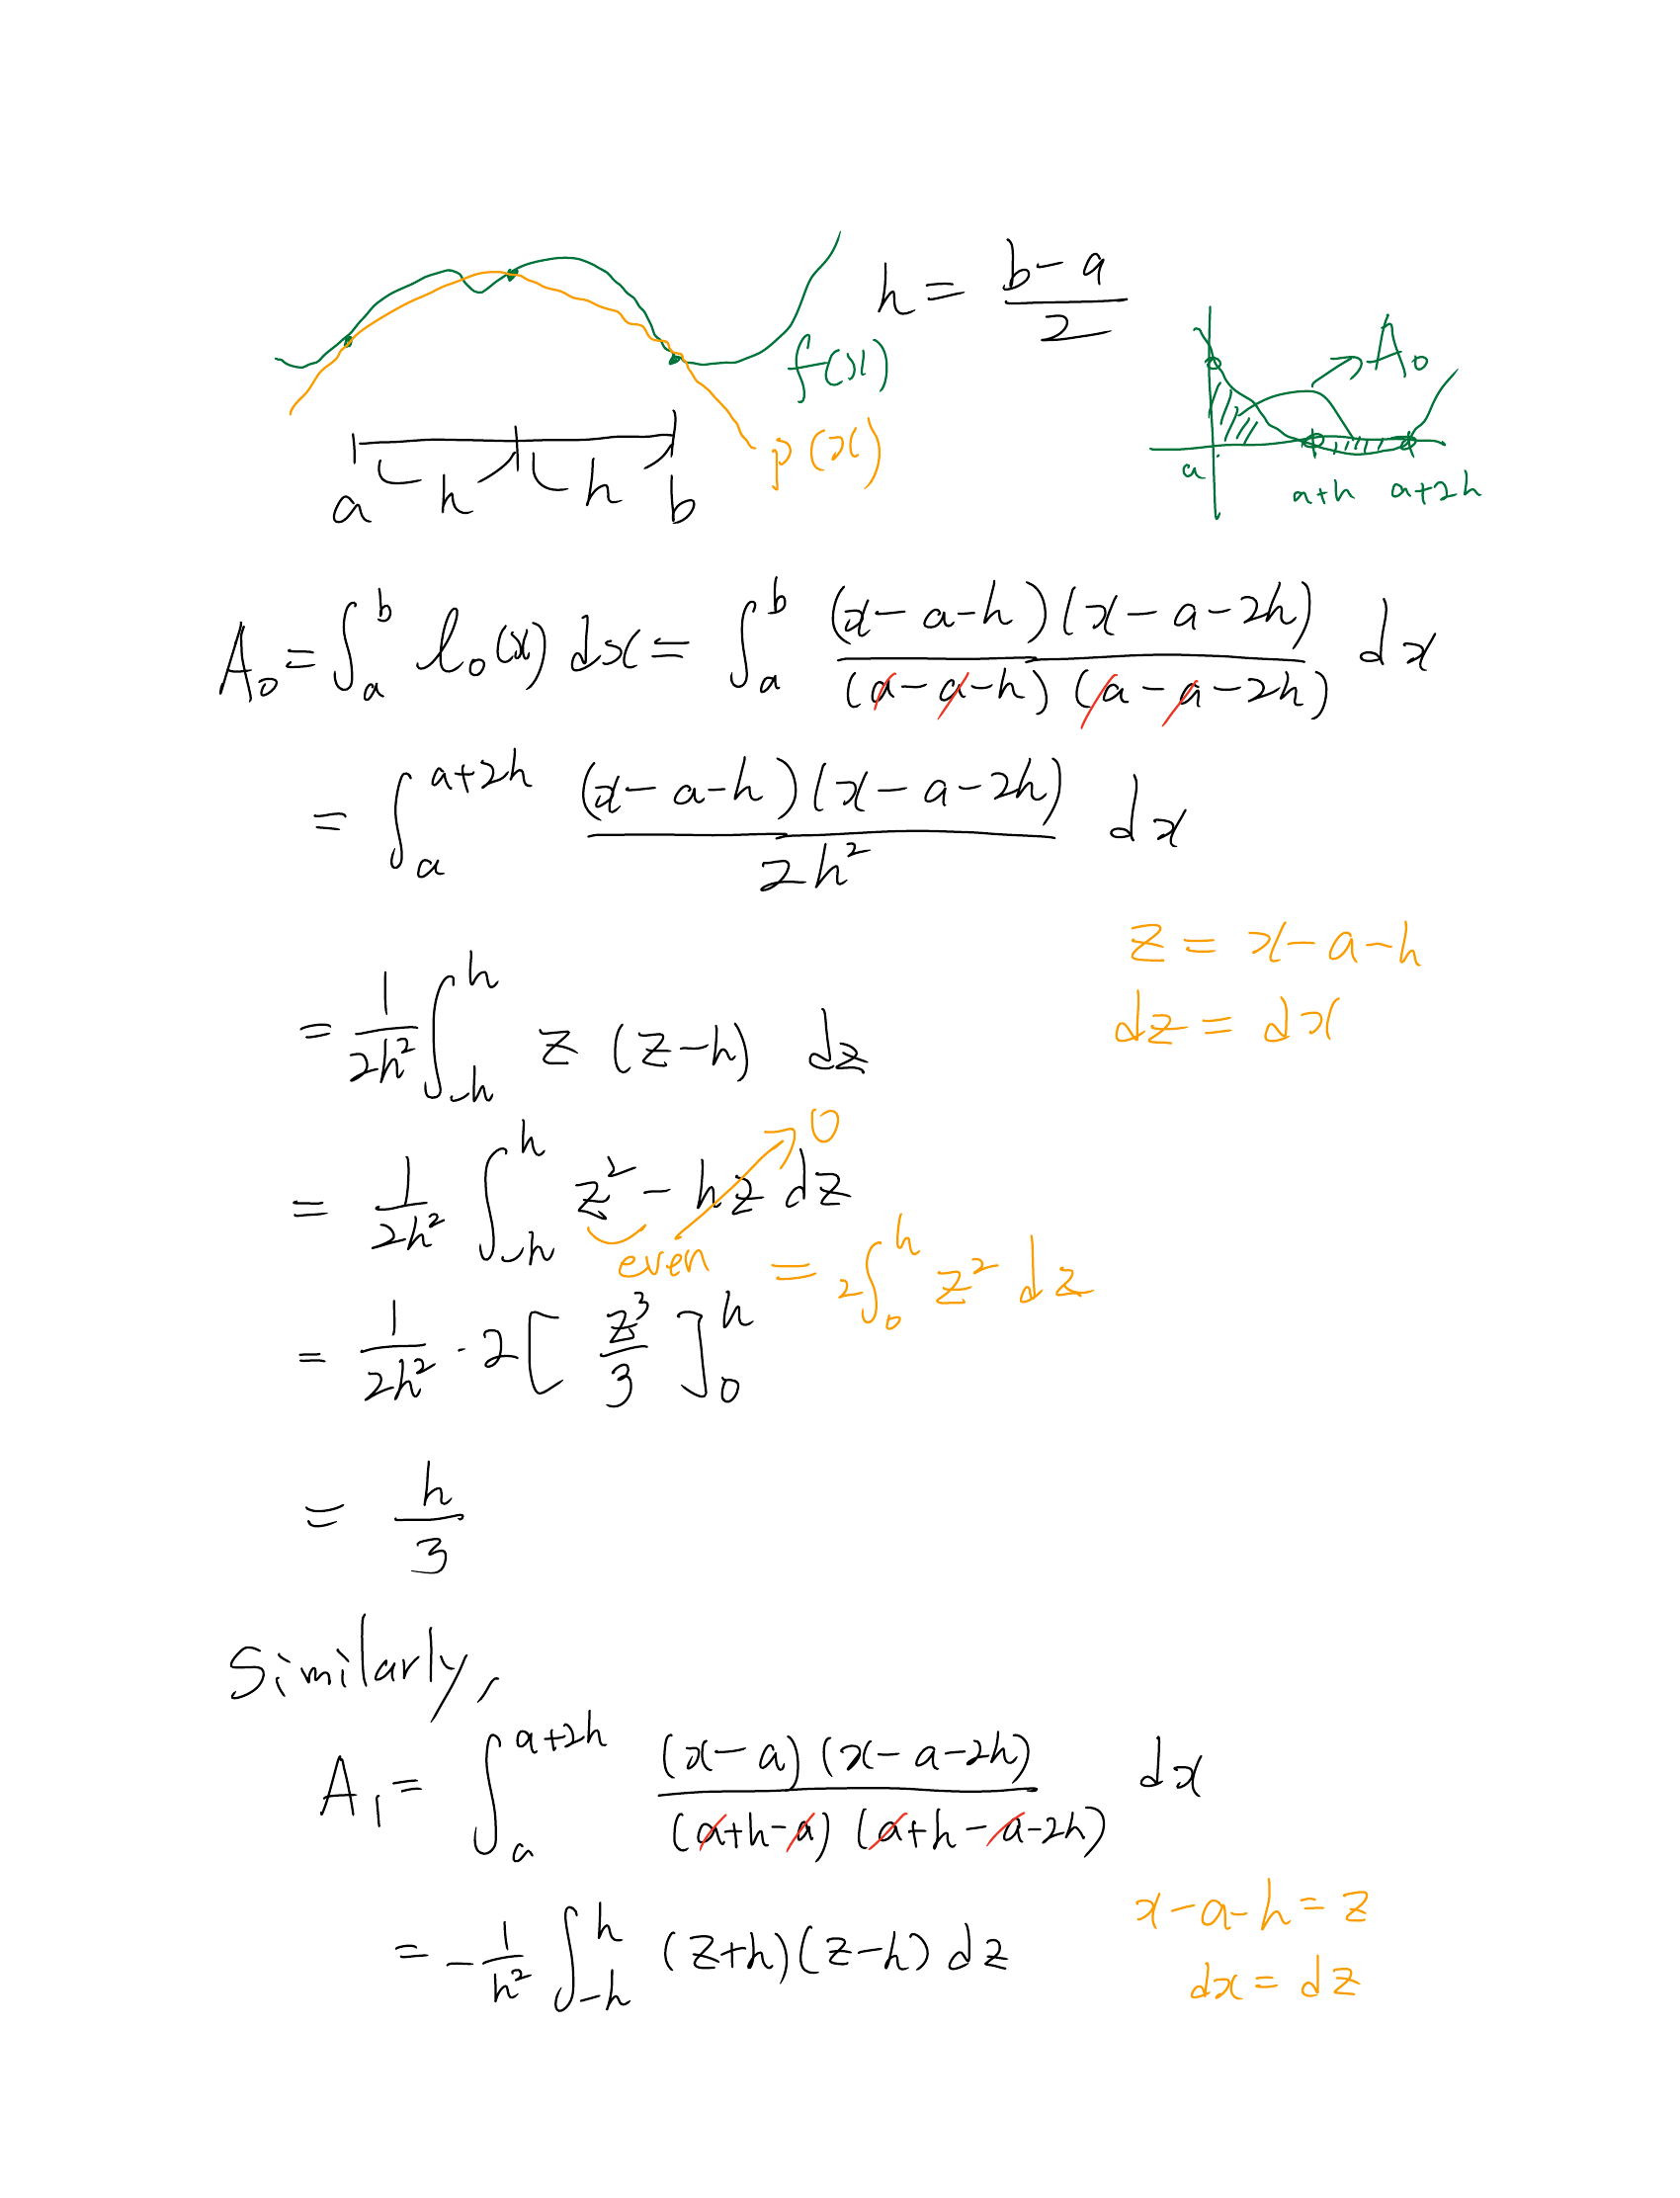 h = \frac{b-a}{2}
f(x)
p(x)
a h h b
A_0
a a+h a+2h
A_0 = \int_a^b l_0(x) dx = \int_a^b \frac{(x-a-h)(x-a-2h)}{(a-a-h)(a-a-2h)} dx
= \int_a^{a+2h} \frac{(x-a-h)(x-a-2h)}{2h^2} dx
z = x-a-h
dz = dx
= \frac{1}{2h^2} \int_{-h}^{h} z (z-h) dz
0
= \frac{1}{2h^2} \int_{-h}^{h} z^2 - hz dz
even = 2\int_0^h z^2 dz
= \frac{1}{2h^2} \cdot 2 [ \frac{z^3}{3} ]_0^h
= \frac{h}{3}
Similarly,
A_1 = \int_a^{a+2h} \frac{(x-a)(x-a-2h)}{(a+h-a)(a+h-a-2h)} dx
x-a-h = z
dx = dz
= -\frac{1}{h^2} \int_{-h}^{h} (z+h)(z-h) dz